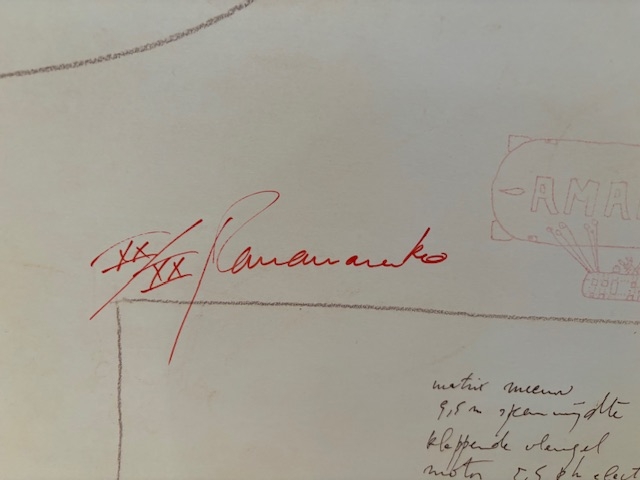 AMA
XX/XX Panamarenko
matrix meeuw
9,5 m spanwijdte
klappende vleugel
motor 5,5 ph elect